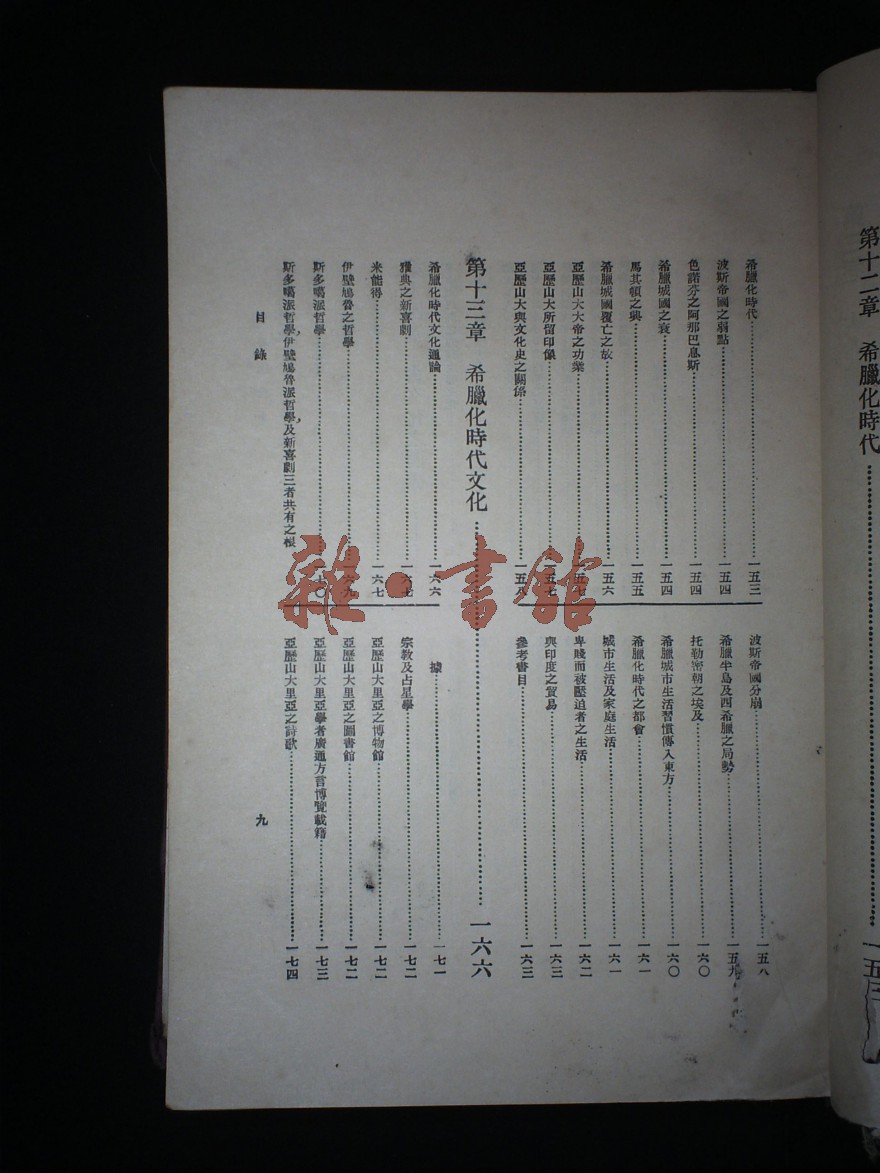 第十二章　希臘化時代……一五三
希臘化時代……一五三
波斯帝國之弱點……一五四
色諾芬之阿那巴息斯……一五四
希臘城國之衰……一五五
馬其頓之興……一五五
希臘城國覆亡之故……一五六
亞歷山大大帝之功業……一五七
亞歷山大所留印像……一五七
亞歷山大與文化史之關係……一五八
波斯帝國分崩……一五八
希臘半島及西希臘之局勢……一五九
托勒密朝之埃及……一六〇
希臘城市生活習慣傳入東方……一六〇
希臘化時代之都會……一六一
城市生活及家庭生活……一六一
卑賤而被壓迫者之生活……一六二
與印度之貿易……一六三
參考書目……一六三
第十三章　希臘化時代文化……一六六
希臘化時代文化通論……一六六
雅典之新喜劇……一六七
米能得……一六七
伊壁鳩魯之哲學……一六九
斯多噶派哲學……一七〇
斯多噶派哲學，伊壁鳩魯派哲學，及新喜劇三者共有之根
據……一七一
宗教及占星學……一七二
亞歷山大里亞之博物館……一七二
亞歷山大里亞之圖書館……一七二
亞歷山大里亞學者廣通方言博覽載籍……一七三
亞歷山大里亞之詩歌……一七四
目錄
九
雜·書館